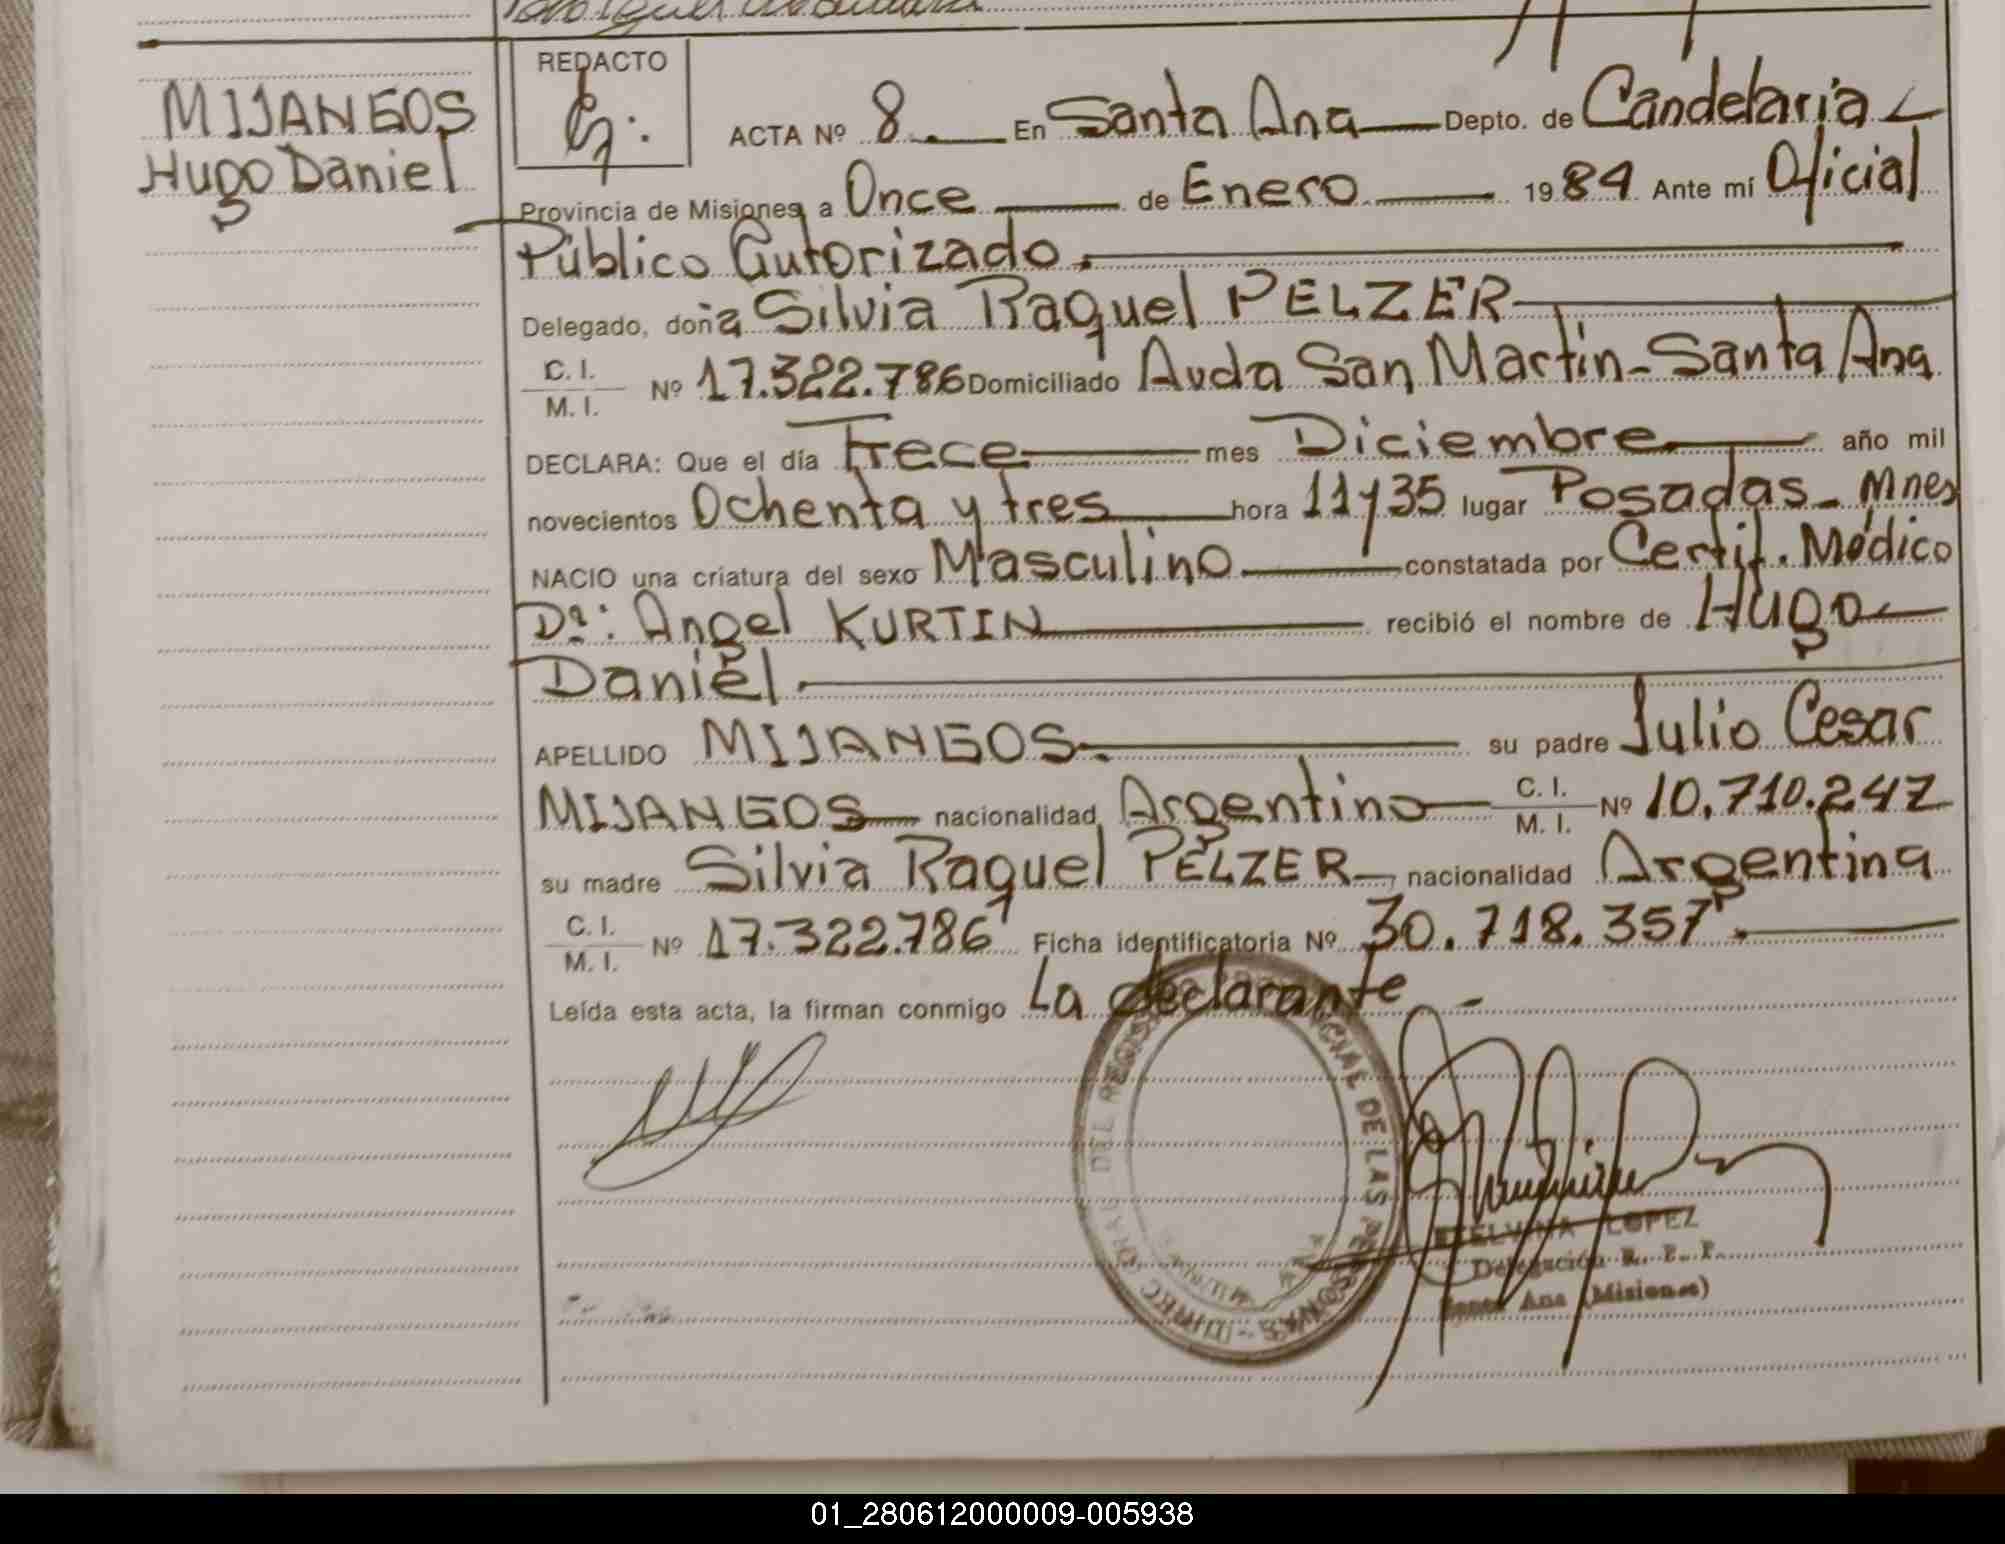 REDACTO
MIJANGOS
Hugo Daniel
ACTA Nº 8. En Santa Ana Depto. de Candelaria
Provincia de Misiones, a Once de Enero 1984 Ante mí Oficial
Público Autorizado.
Delegado, doña Silvia Raquel PELZER
C. I.
M. I. Nº 17.322.786 Domiciliado Avda San Martín - Santa Ana
DECLARA: Que el día Trece mes Diciembre año mil
novecientos Ochenta y tres hora 11y35 lugar Posadas - Mnes
NACIO una criatura del sexo Masculino constatada por Certif. Médico
Dr: Angel KURTIN recibió el nombre de Hugo
Daniel
APELLIDO MIJANGOS. su padre Julio Cesar
MIJANGOS nacionalidad Argentino C. I.
M. I. Nº 10.710.247
su madre Silvia Raquel PELZER nacionalidad Argentina
C. I.
M. I. Nº 17.322.786 Ficha identificatoria Nº 30.718.357.
Leída esta acta, la firman conmigo La declarante -
DEL REGIS CIAL DE LAS PERSONAS
LOPEZ
Delegación R. P. P.
Santa Ana (Misiones)
01_280612000009-005938